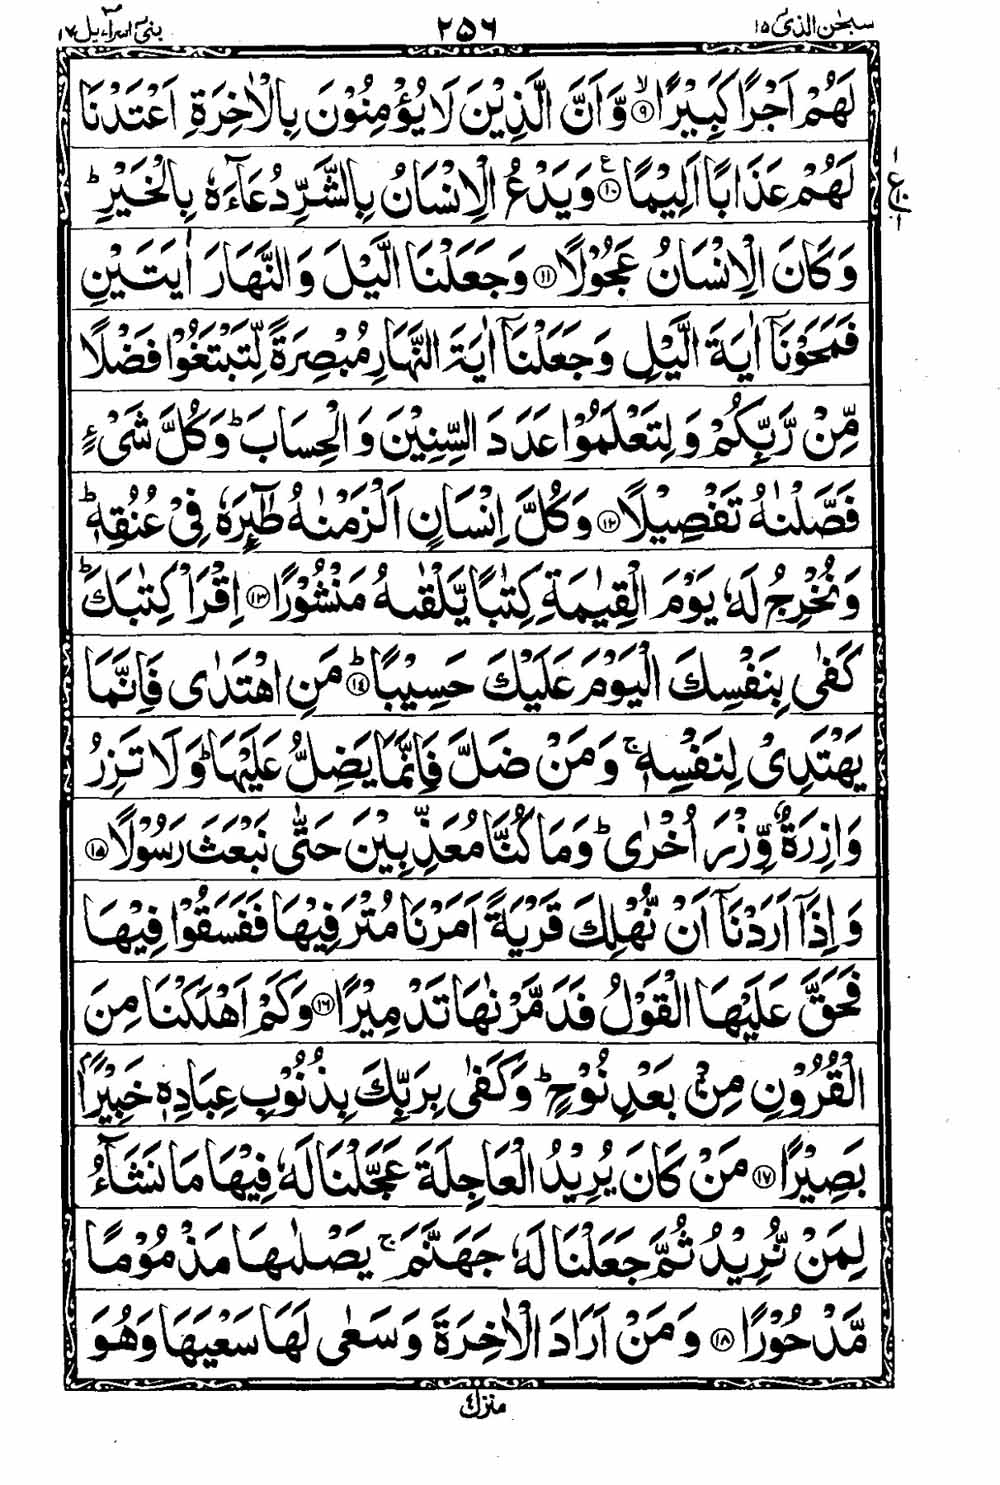 سبحٰن الذی ۱۵
۲۵۶
بنی اسرآءیل ۱۷
لَهُمْ اَجْرًا كَبِیْرًا ۙ﴿۹﴾ وَّاَنَّ الَّذِیْنَ لَا یُؤْمِنُوْنَ بِالْاٰخِرَةِ اَعْتَدْنَا
لَهُمْ عَذَابًا اَلِیْمًا ﴿۱۰﴾ ع وَیَدْعُ الْاِنْسَانُ بِالشَّرِّ دُعَآءَهٗ بِالْخَیْرِ ؕ
وَكَانَ الْاِنْسَانُ عَجُوْلًا ﴿۱۱﴾ وَجَعَلْنَا الَّیْلَ وَالنَّهَارَ اٰیَتَیْنِ
فَمَحَوْنَاۤ اٰیَةَ الَّیْلِ وَجَعَلْنَاۤ اٰیَةَ النَّهَارِ مُبْصِرَةً لِّتَبْتَغُوْا فَضْلًا
مِّنْ رَّبِّكُمْ وَلِتَعْلَمُوْا عَدَدَ السِّنِیْنَ وَالْحِسَابَ ؕ وَكُلَّ شَیْءٍ
فَصَّلْنٰهُ تَفْصِیْلًا ﴿۱۲﴾ وَكُلَّ اِنْسَانٍ اَلْزَمْنٰهُ طٰٓئِرَهٗ فِیْ عُنُقِهٖ ؕ
وَنُخْرِجُ لَهٗ یَوْمَ الْقِیٰمَةِ كِتٰبًا یَّلْقٰىهُ مَنْشُوْرًا ﴿۱۳﴾ اِقْرَاْ كِتٰبَكَ ؕ
كَفٰی بِنَفْسِكَ الْیَوْمَ عَلَیْكَ حَسِیْبًا ؕ﴿۱۴﴾ مَنِ اهْتَدٰی فَاِنَّمَا
یَهْتَدِیْ لِنَفْسِهٖ ۚ وَمَنْ ضَلَّ فَاِنَّمَا یَضِلُّ عَلَیْهَا ؕ وَلَا تَزِرُ
وَازِرَةٌ وِّزْرَ اُخْرٰی ؕ وَمَا كُنَّا مُعَذِّبِیْنَ حَتّٰی نَبْعَثَ رَسُوْلًا ﴿۱۵﴾
وَاِذَاۤ اَرَدْنَاۤ اَنْ نُّهْلِكَ قَرْیَةً اَمَرْنَا مُتْرَفِیْهَا فَفَسَقُوْا فِیْهَا
فَحَقَّ عَلَیْهَا الْقَوْلُ فَدَمَّرْنٰهَا تَدْمِیْرًا ﴿۱۶﴾ وَكَمْ اَهْلَكْنَا مِنَ
الْقُرُوْنِ مِنْۢ بَعْدِ نُوْحٍ ؕ وَكَفٰی بِرَبِّكَ بِذُنُوْبِ عِبَادِهٖ خَبِیْرًۢا
بَصِیْرًا ﴿۱۷﴾ مَنْ كَانَ یُرِیْدُ الْعَاجِلَةَ عَجَّلْنَا لَهٗ فِیْهَا مَا نَشَآءُ
لِمَنْ نُّرِیْدُ ثُمَّ جَعَلْنَا لَهٗ جَهَنَّمَ ۚ یَصْلٰىهَا مَذْمُوْمًا
مَّدْحُوْرًا ﴿۱۸﴾ وَمَنْ اَرَادَ الْاٰخِرَةَ وَسَعٰی لَهَا سَعْیَهَا وَهُوَ
منزل ٤